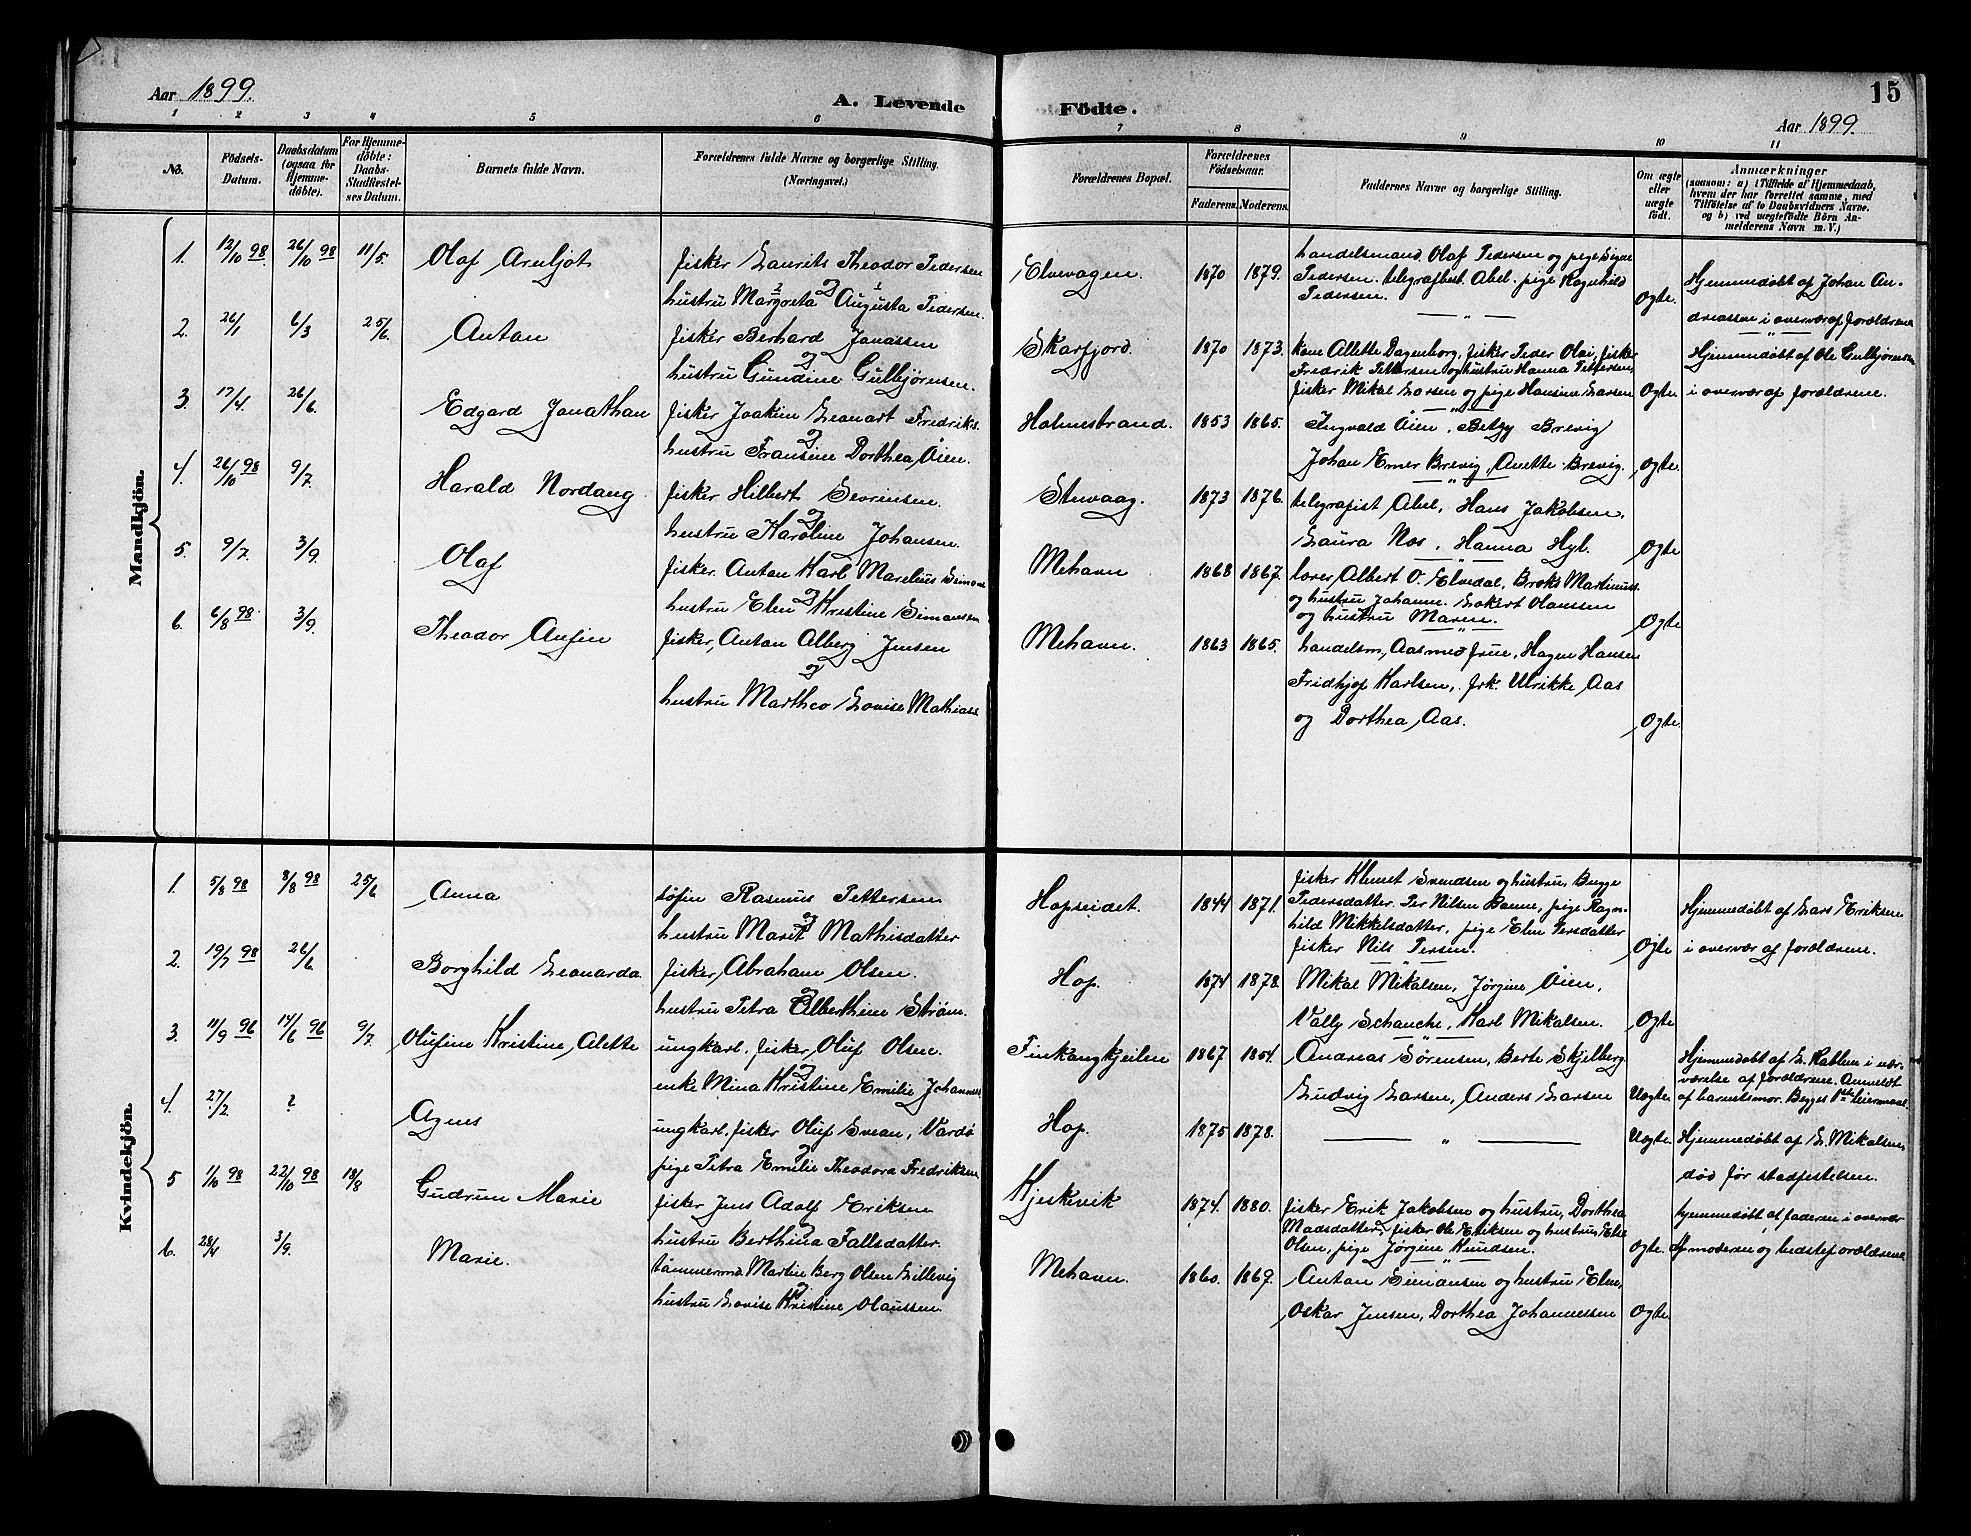 Aar 1899.
A. Levende Födte.
15
Aar 1899.
1 2 3 4 5 6 7 8 9 10 11
No.
Födsels-Datum.
Daabsdatum (ogsaa for Hjemmedöbte).
For Hjemmedöbte: Daabs-Stadfæstelses Datum.
Barnets fulde Navn.
Forældrenes fulde Navne og borgerlige Stilling. (Næringsvei.)
Forældrenes Bopæl.
Forældrenes Födselsaar.
Faderens. Moderens.
Faddernes Navne og borgerlige Stilling.
Om ægte eller uægte født.
Anmærkninger
(saasom: a) i Tilfælde af Hjemmedaab, hvem der har forrettet samme, med Tilföielse af to Daabsvidners Navne, og b) ved uægtefödte Börn Anmelderens Navn m. V.)
Mandkjön.
1. 12/10 98 26/10 98 11/5. Olaf Arnljot
fisker Laurits Theodor Pedersen
og
hustru Margreta Augusta Pedersen.
Elvevagen. 1870 1879.
handelsmand Olaf Pedersen og pige Signe
Pedersen. telegrafbest. Abel. pige Ragnhild
Pedersen.
Ægte.
Hjemmedøbt af Johan An-
dreassen i overvær af forældrene
2. 26/1 6/3 25/6. Antan
fisker Berhard Janassen
og
hustru Gundine Gulbjørnsen.
Skarfjord. 1870 1873.
kone Allette Dagenborg, fisker Peder Olai, fisker
Fredrik Pettersen og hustru Hanna Pettersen,
fisker Mikal Larsen og pige Hansine Larsen
Ægte
Hjemmedøbt af Ole Gulbjørnsen
i overvær af forældrene.
3. 17/4. 26/6. Edgard Jonathan
fisker Joakim Leonart Fredriks.
og
hustru Fransine Dorthea Øien.
Holmestrand. 1853 1865.
Ingvald Øien, Betzy Brevig
Johan Emer Brevig, Anette Brevig.
Ægte
4. 26/10 98 9/7. Harald Nordang
fisker Hilbert Sevrinsen.
og
hustru Karoline Johansen.
Stuvaag. 1873 1876.
telegrafist Abel, Hans Jakobsen,
Laura Næs, Hanna Hyl.
Ægte
5. 9/7. 3/9. Olaf
fisker. Antan Karl Marelius Simons
og
hustru Elen Kristine Simonsen
Mehavn 1868 1867.
lærer, Albert O. Elvedal, Broks Martinus
og hustru Johanne. Lokert Olaussen
og hustru Maren.
Ægte
6. 6/8 98 3/9. Theodor Anfin
fisker, Antan Alberg Jensen
og
hustru Marthea Lovise Mathiass
Mehavn. 1863 1865.
handelsm, Aas med frue, Hagen Hansen
Fridhjof Karlsen, frk. Ulrikke Aas
og Dorthea Aas.
Ægte
Kvindekjön.
1. 5/8 98 8/8 98 25/6 Anna
søfin Rasmus Pettersen
og
hustru Marit Mathisdatter
Hopseidet. 1844 1871.
fisker Klemet Svendsen og hustru, Bigge
Pedersdatter. Per Nilsen Banne, pige Ragn-
hild Mikkelsdatter, pige Elen Persdatter
fisker Nils Persen.
Ægte
Hjemmedøbt af Lars Eriksen
i overvær af forældrene.
2. 19/7 98 26/6 Borghild Leonarda
fisker, Abraham Olsen.
og
hustru Petra Alberthine Strøm.
Hop. 1874 1878.
Mikal Mikalsen, Jørgine Øien,
Vally Schanche, Karl Mikalsen.
Ægte
3. 11/9 96 14/6 96 9/7. Olufine Kristine, Alette
ungkarl, fisker, Oluf Olsen.
og
enke Mina Kristine Emilie Johannes
Finkangkjeilen 1867 1854.
Andreas Sørensen, Berte Skjelberg
Ludvig Larsen, Anders Larsen
Uægte
Hjemmedøbt af L. Rabben i nær-
værelse af forældrene. Anmeldt
af barnets mor. Begges 1ste leiermaal.
4. 27/2 ? Agnes
ungkarl, fisker Oluf Svean, Vardø
og
pige Petra Emilie Theodora Fredriksen
Hop. 1875 1878.
Uægte
Hjemmedøbt af L. Mikalsen
død før stadfestelsen.
5 1/10 98 22/10 98 18/8 Gudrun Marie
fisker Jens Adolf Eriksen
og
hustru Berthina Fallsdatter.
Kjeskevik 1874. 1880.
fisker Erik Jakobsen og hustru, Dorthea
Madsdatter, fisker Ole Eriksen og hustru, Else
Olsen, pige Jørgine Knudsen.
Ægte.
hjemmedøbt af faderen i overvær
af moderen og bedsteforældrene
6. 28/4 3/9. Marie.
tømmermd. Martin Berg Olsen Lillevig
og
hustru Lovise Kristine Olaussen.
Mehavn. 1860. 1869.
Antan Simonsen og hustru Elen,
Oskar Jensen, Dorthea Johannessen
Ægte